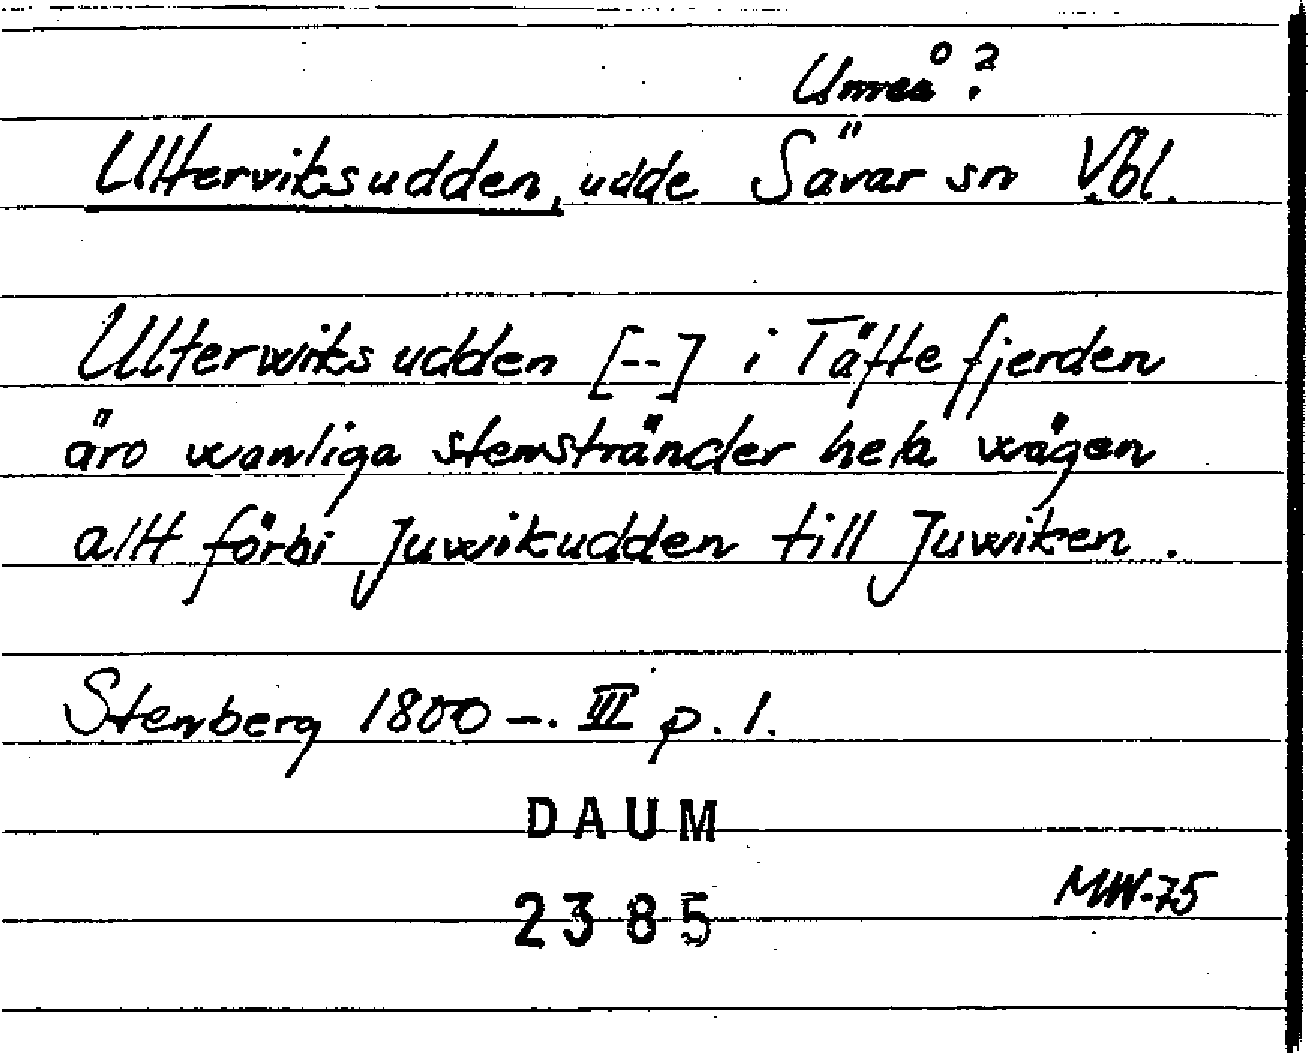 Umeå?
Ulterviksudden, udde Sävar sn Vbl.
Ulterwiksudden [--] i Täftefjerden
äro wanliga stenstränder hela wägen
allt förbi Juwikudden till Juwiken.
Stenberg 1800-. III p. 1.
DAUM
2385
MW-75